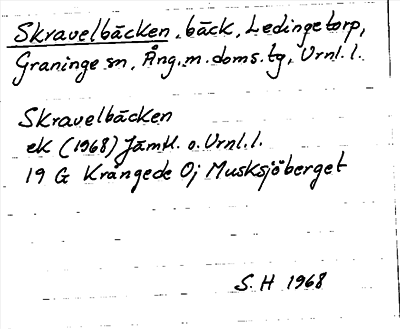 Skravelbäcken, bäck, Ledingetorp,
Graninge sn, Ång.m.doms.tg, Vrnl.l.
Skravelbäcken
ek (1968) Jämtl. o. Vrnl.l.
19 G Krångede 0j Musksjöberget
S.H 1968